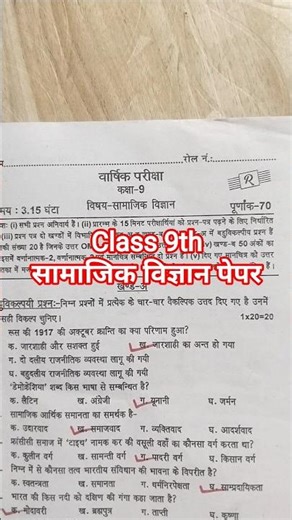 रोल नं.:
वार्षिक परीक्षा
कक्षा-9
R
समय : 3.15 घंटा विषय-सामाजिक विज्ञान पूर्णांक-70
(i) सभी प्रश्न अनिवार्य हैं। (ii) प्रारम्भ के 15 मिनट परीक्षार्थियों को प्रश्न-पत्र पढ़ने के लिए निर्धारित
Class 9th
सामाजिक विज्ञान पेपर
खण्ड-अ
बहुविकल्पीय प्रश्न:-निम्न प्रश्नों में प्रत्येक के चार-चार वैकल्पिक उत्तर दिए गए है उनमें
सही विकल्प चुनिए। 1x20=20
रूस की 1917 की अक्टूबर क्रान्ति का क्या परिणाम हुआ?
क. जारशाही और सशक्त हुई ख. जारशाही का अन्त हो गया
ग. दो दलीय राजनीतिक व्यवस्था लागू की गयी
घ. बहुदलीय राजनीतिक व्यवस्था लागू की गयी
'डेमोक्रेशिया' शब्द किस भाषा से सम्बन्धित है?
क. लैटिन ख. अंग्रेजी ग. यूनानी घ. जर्मन
सामाजिक आर्थिक समानता का समर्थक है-
क. उदारवाद ख. समाजवाद ग. व्यक्तिवाद घ. आदर्शवाद
फ्रांसीसी समाज में 'टाइथ' नामक कर की वसूली वहाँ का कौनसा वर्ग करता था?
क. कुलीन वर्ग ख. सामन्ती वर्ग ग. पादरी वर्ग घ. किसान वर्ग
निम्न में से कौनसा तत्व भारतीय संविधान की भावना के विपरीत है?
क. स्वतन्त्रता ख. समानता ग. धर्मनिरपेक्षता घ. साम्प्रदायिकता
भारत की किस नदी को दक्षिण की गंगा कहा जाता है?
क. गोदावरी ख. ब्रह्मपुत्र ग. ताप्ती घ. कृष्णा